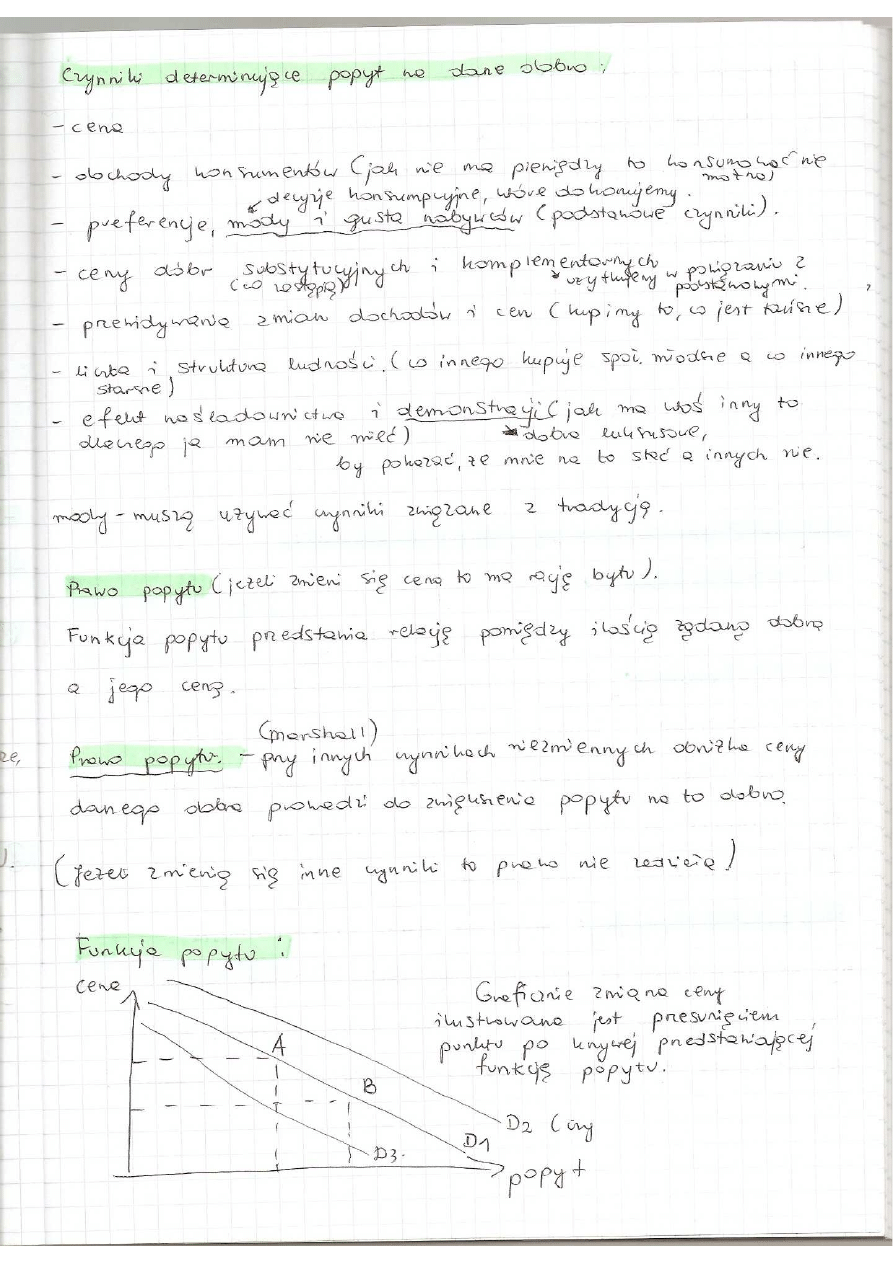 Czynniki determinujące popyt na dane dobro:
- cena
- dochody konsumentów (jak nie ma pieniędzy to konsumować nie
można)
decyzje konsumpcyjne, które dokonujemy.
- preferencje, mody i gusta nabywców (podstawowe czynniki).
- ceny dóbr substytucyjnych i komplementarnych
(co zastępują) użytkujemy w powiązaniu z
podstawowymi.
- przewidywania zmian dochodów i cen (kupimy to, co jest tańsze)
- liczba i struktura ludności. (co innego kupuje społ. młodsze a co innego
starsze)
- efekt naśladownictwa i demonstracji (jak ma ktoś inny to
dlaczego ja mam nie mieć) dobra luksusowe,
by pokazać, że mnie na to stać a innych nie.
mody - muszą używać czynniki związane z tradycją.
Prawo popytu (jeżeli zmieni się cena to ma rację bytu).
Funkcja popytu przedstawia relację pomiędzy ilością żądaną dobra
a jego ceną.
(Marshall)
Prawo popytu. - przy innych czynnikach niezmiennych obniżka ceny
danego dobra prowadzi do zwiększenia popytu na to dobro.
(jeżeli zmienią się inne czynniki to prawo nie zadziała)
Funkcja popytu:
cena
Graficznie zmiana ceny
ilustrowana jest przesunięciem
punktu po krzywej przedstawiającej
funkcję popytu.
A
B
D2 (czy
D1
D3.
popyt